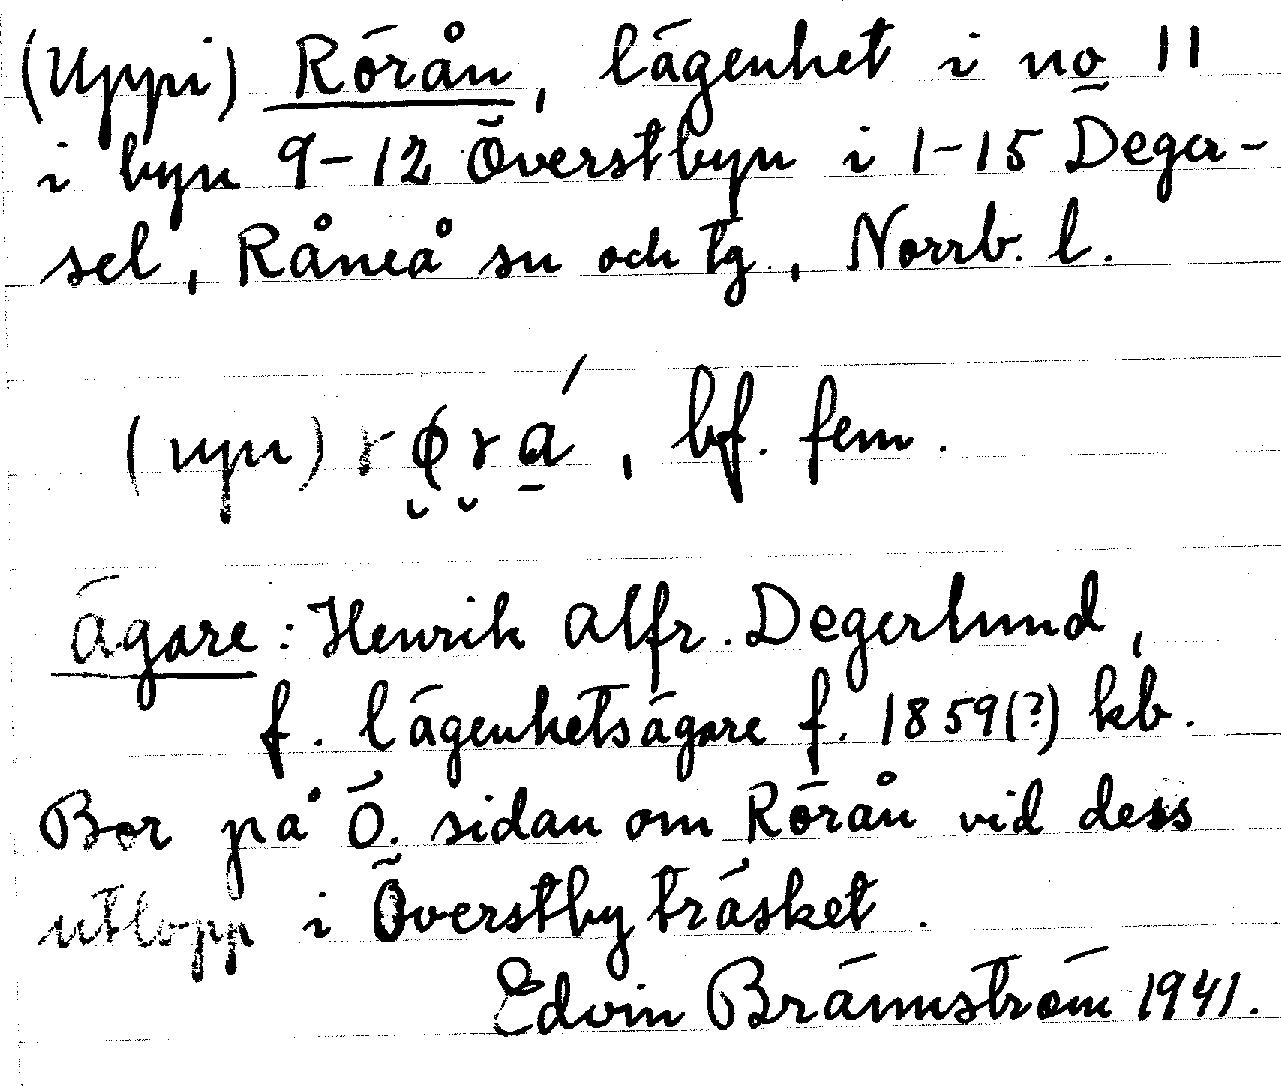 (Uppi) Rörån, lägenhet i no 11
i byn 9-12 Överstbyn i 1-15 Deger-
sel, Råneå sn och tg., Norrb. l.
(upi) rørá, bf. fem.
Ägare: Henrik Alfr. Degerlund,
f. lägenhetsägare f. 1859(?) kb.
Bor på Ö. sidan om Rörån vid dess
utlopp i Överstbyträsket.
Edvin Brännström 1941.